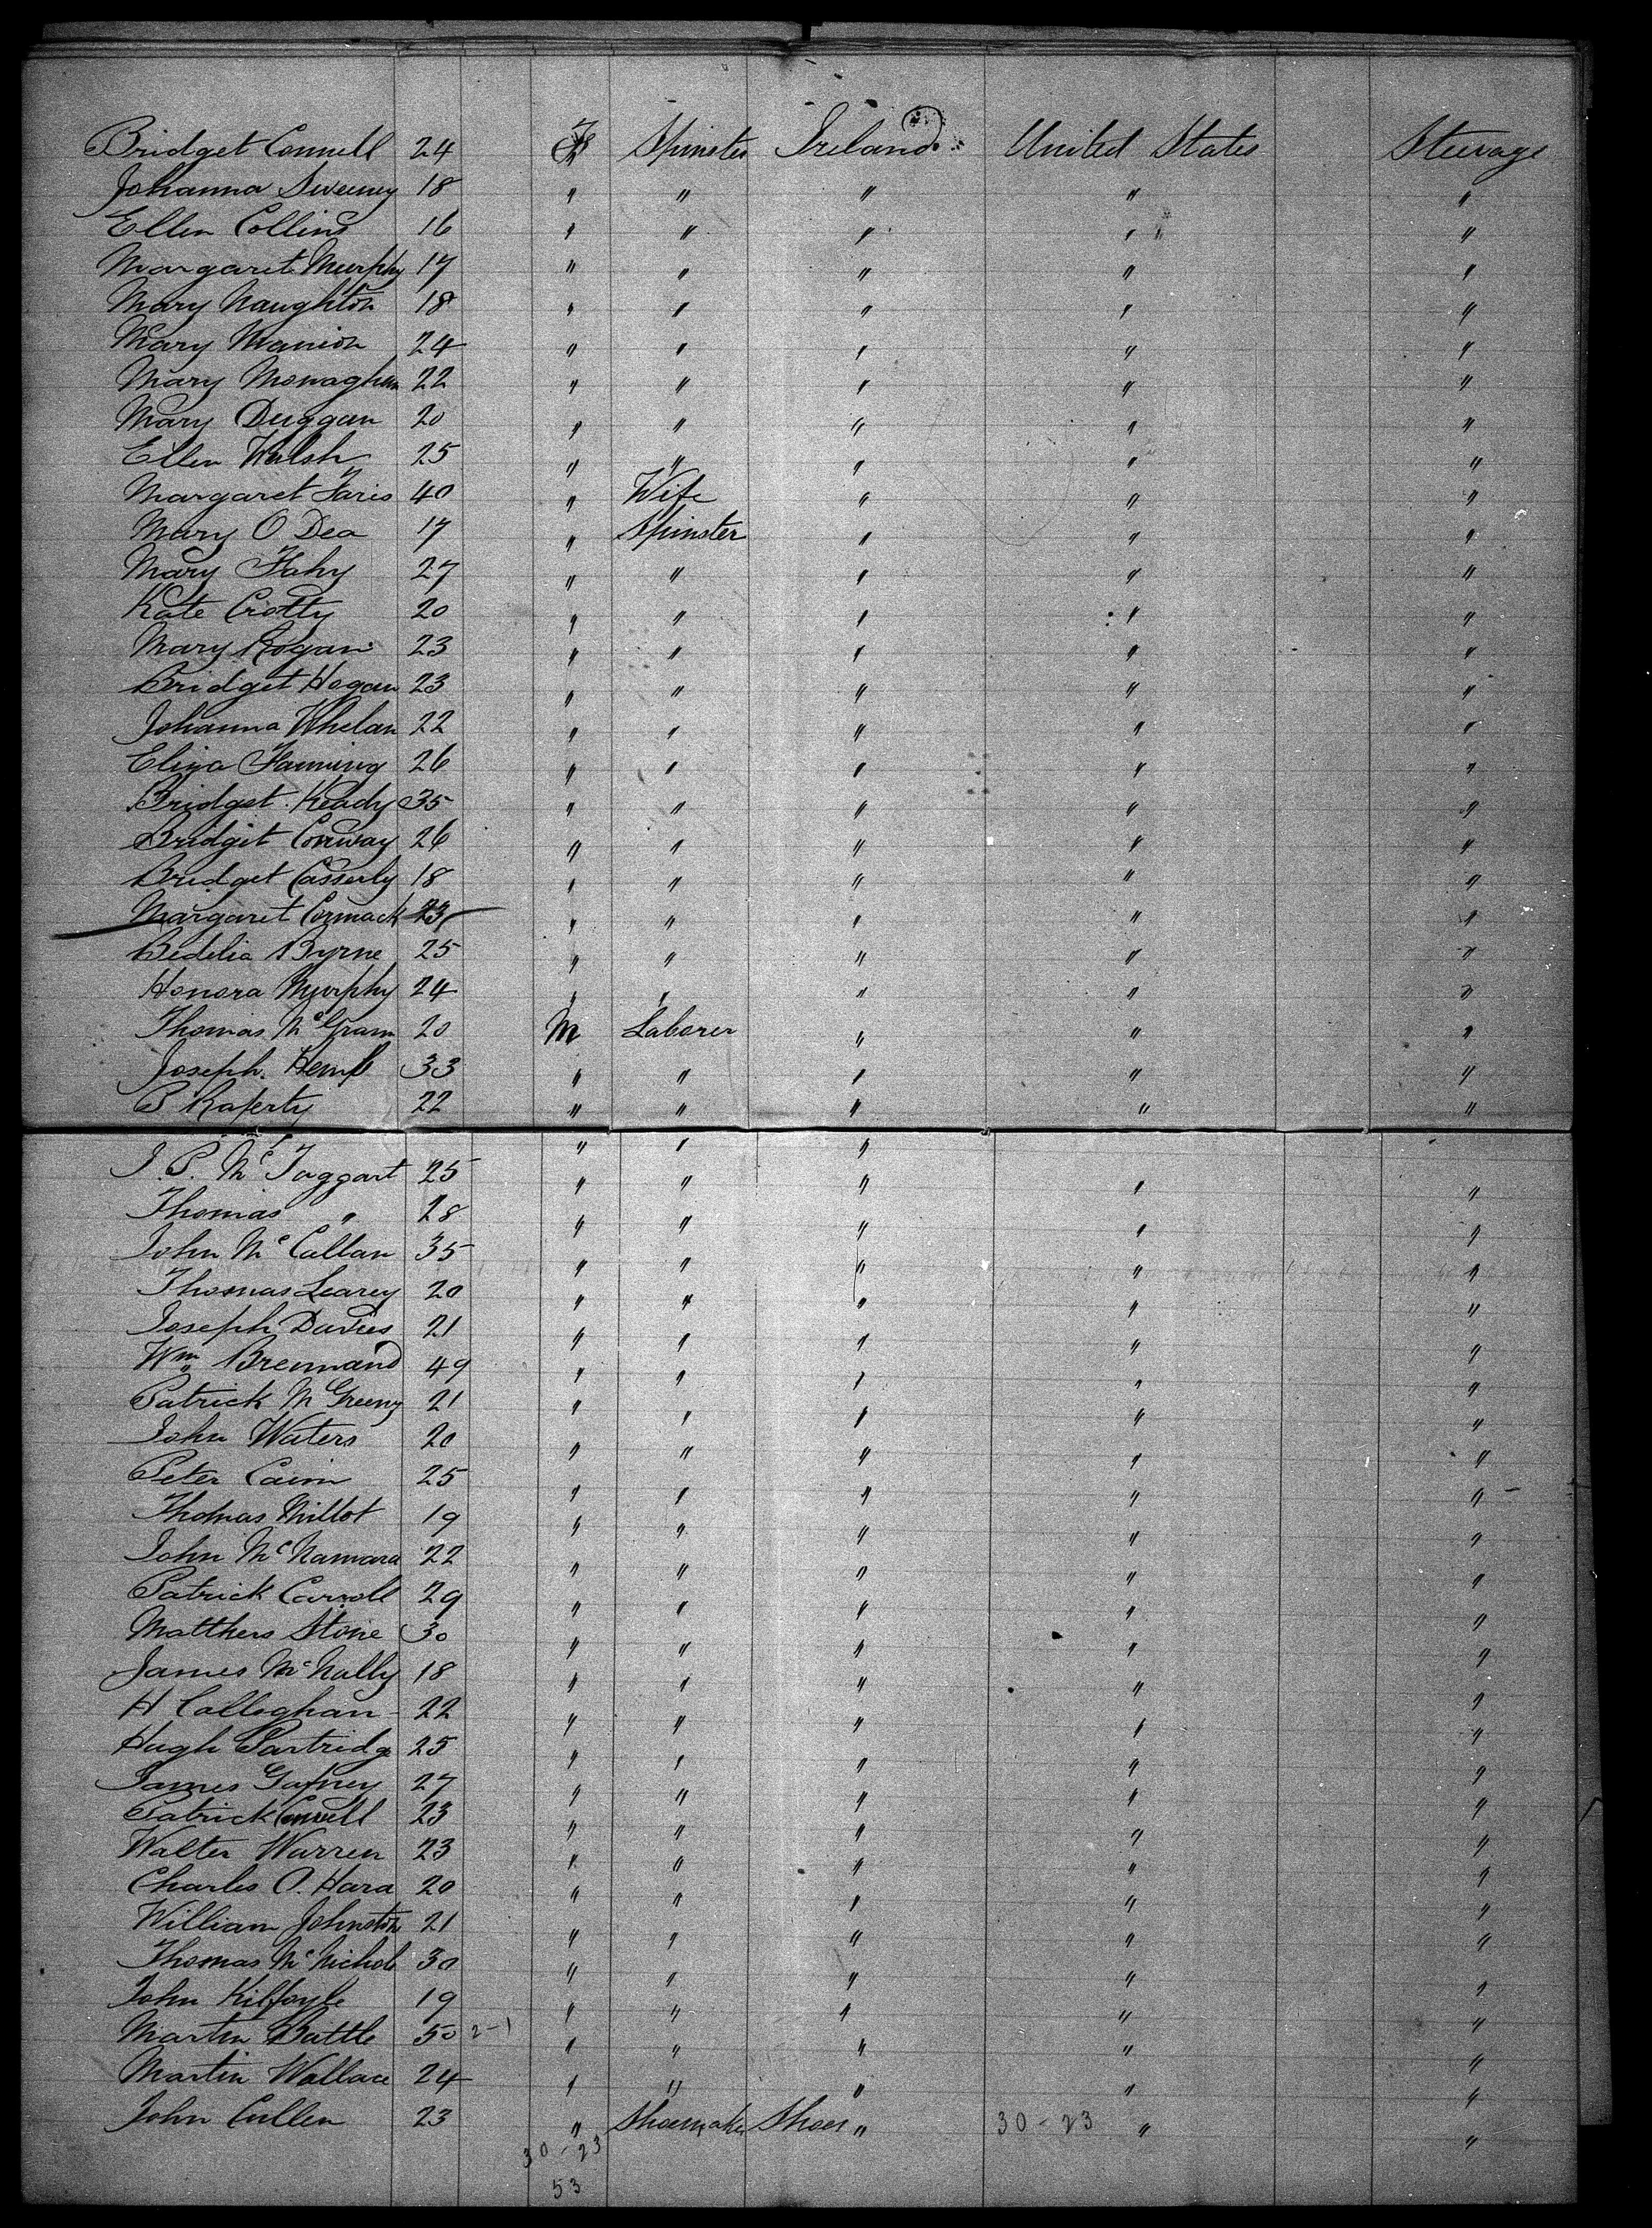 Bridget Connell 24 F Spinster Ireland United States Steerage
Johanna Sweeney 18 " " " " "
Ellen Collins 16 " " " " "
Margaret Murphy 17 " " " " "
Mary Naughton 18 " " " " "
Mary Mannion 24 " " " " "
Mary Monaghan 22 " " " " "
Mary Duggan 20 " " " " "
Ellen Walsh 25 " " " " "
Margaret Faris 40 " Wife " " "
Mary O Dea 17 " Spinster " " "
Mary Fahy 27 " " " " "
Kate Crotty 20 " " " " "
Mary Rogan 23 " " " " "
Bridget Hogan 23 " " " " "
Johanna Whelan 22 " " " " "
Eliza Fanning 26 " " " " "
Bridget Keady 35 " " " " "
Bridget Conway 26 " " " " "
Bridget Casserly 18 " " " " "
Margaret Cormack 23 " " " " "
Bedelia Byrne 25 " " " " "
Honora Murphy 24 " " " " "
Thomas McGram 20 M Laborer " " "
Joseph Hemp 33 " " " " "
P Raferty 22 " " " " "
J. P. McTaggart 25 " " " " "
Thomas " 28 " " " " "
John McCallan 35 " " " " "
Thomas Learey 20 " " " " "
Joseph Davies 21 " " " " "
Wm Brennand 49 " " " " "
Patrick McGreeny 21 " " " " "
John Waters 20 " " " " "
Peter Cainn 25 " " " " "
Thomas Millot 19 " " " " "
John McNamara 22 " " " " "
Patrick Carroll 29 " " " " "
Matthew Stone 30 " " " " "
James McNally 18 " " " " "
H Calleghan 22 " " " " "
Hugh Partridge 25 " " " " "
James Gafney 27 " " " " "
Patrick Conwell 23 " " " " "
Walter Warren 23 " " " " "
Charles O. Hara 20 " " " " "
William Johnston 21 " " " " "
Thomas McNichols 30 " " " " "
John Kilfoyle 19 " " " " "
Martin Battle 50 2-1 " " " " "
Martin Wallace 24 " " " " "
John Cullen 23 " Shoemaker Shoes " 30-23 " "
30-23
53